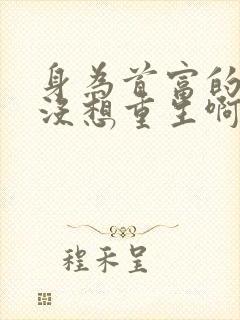 身为首富的
没想重生啊
程禾呈